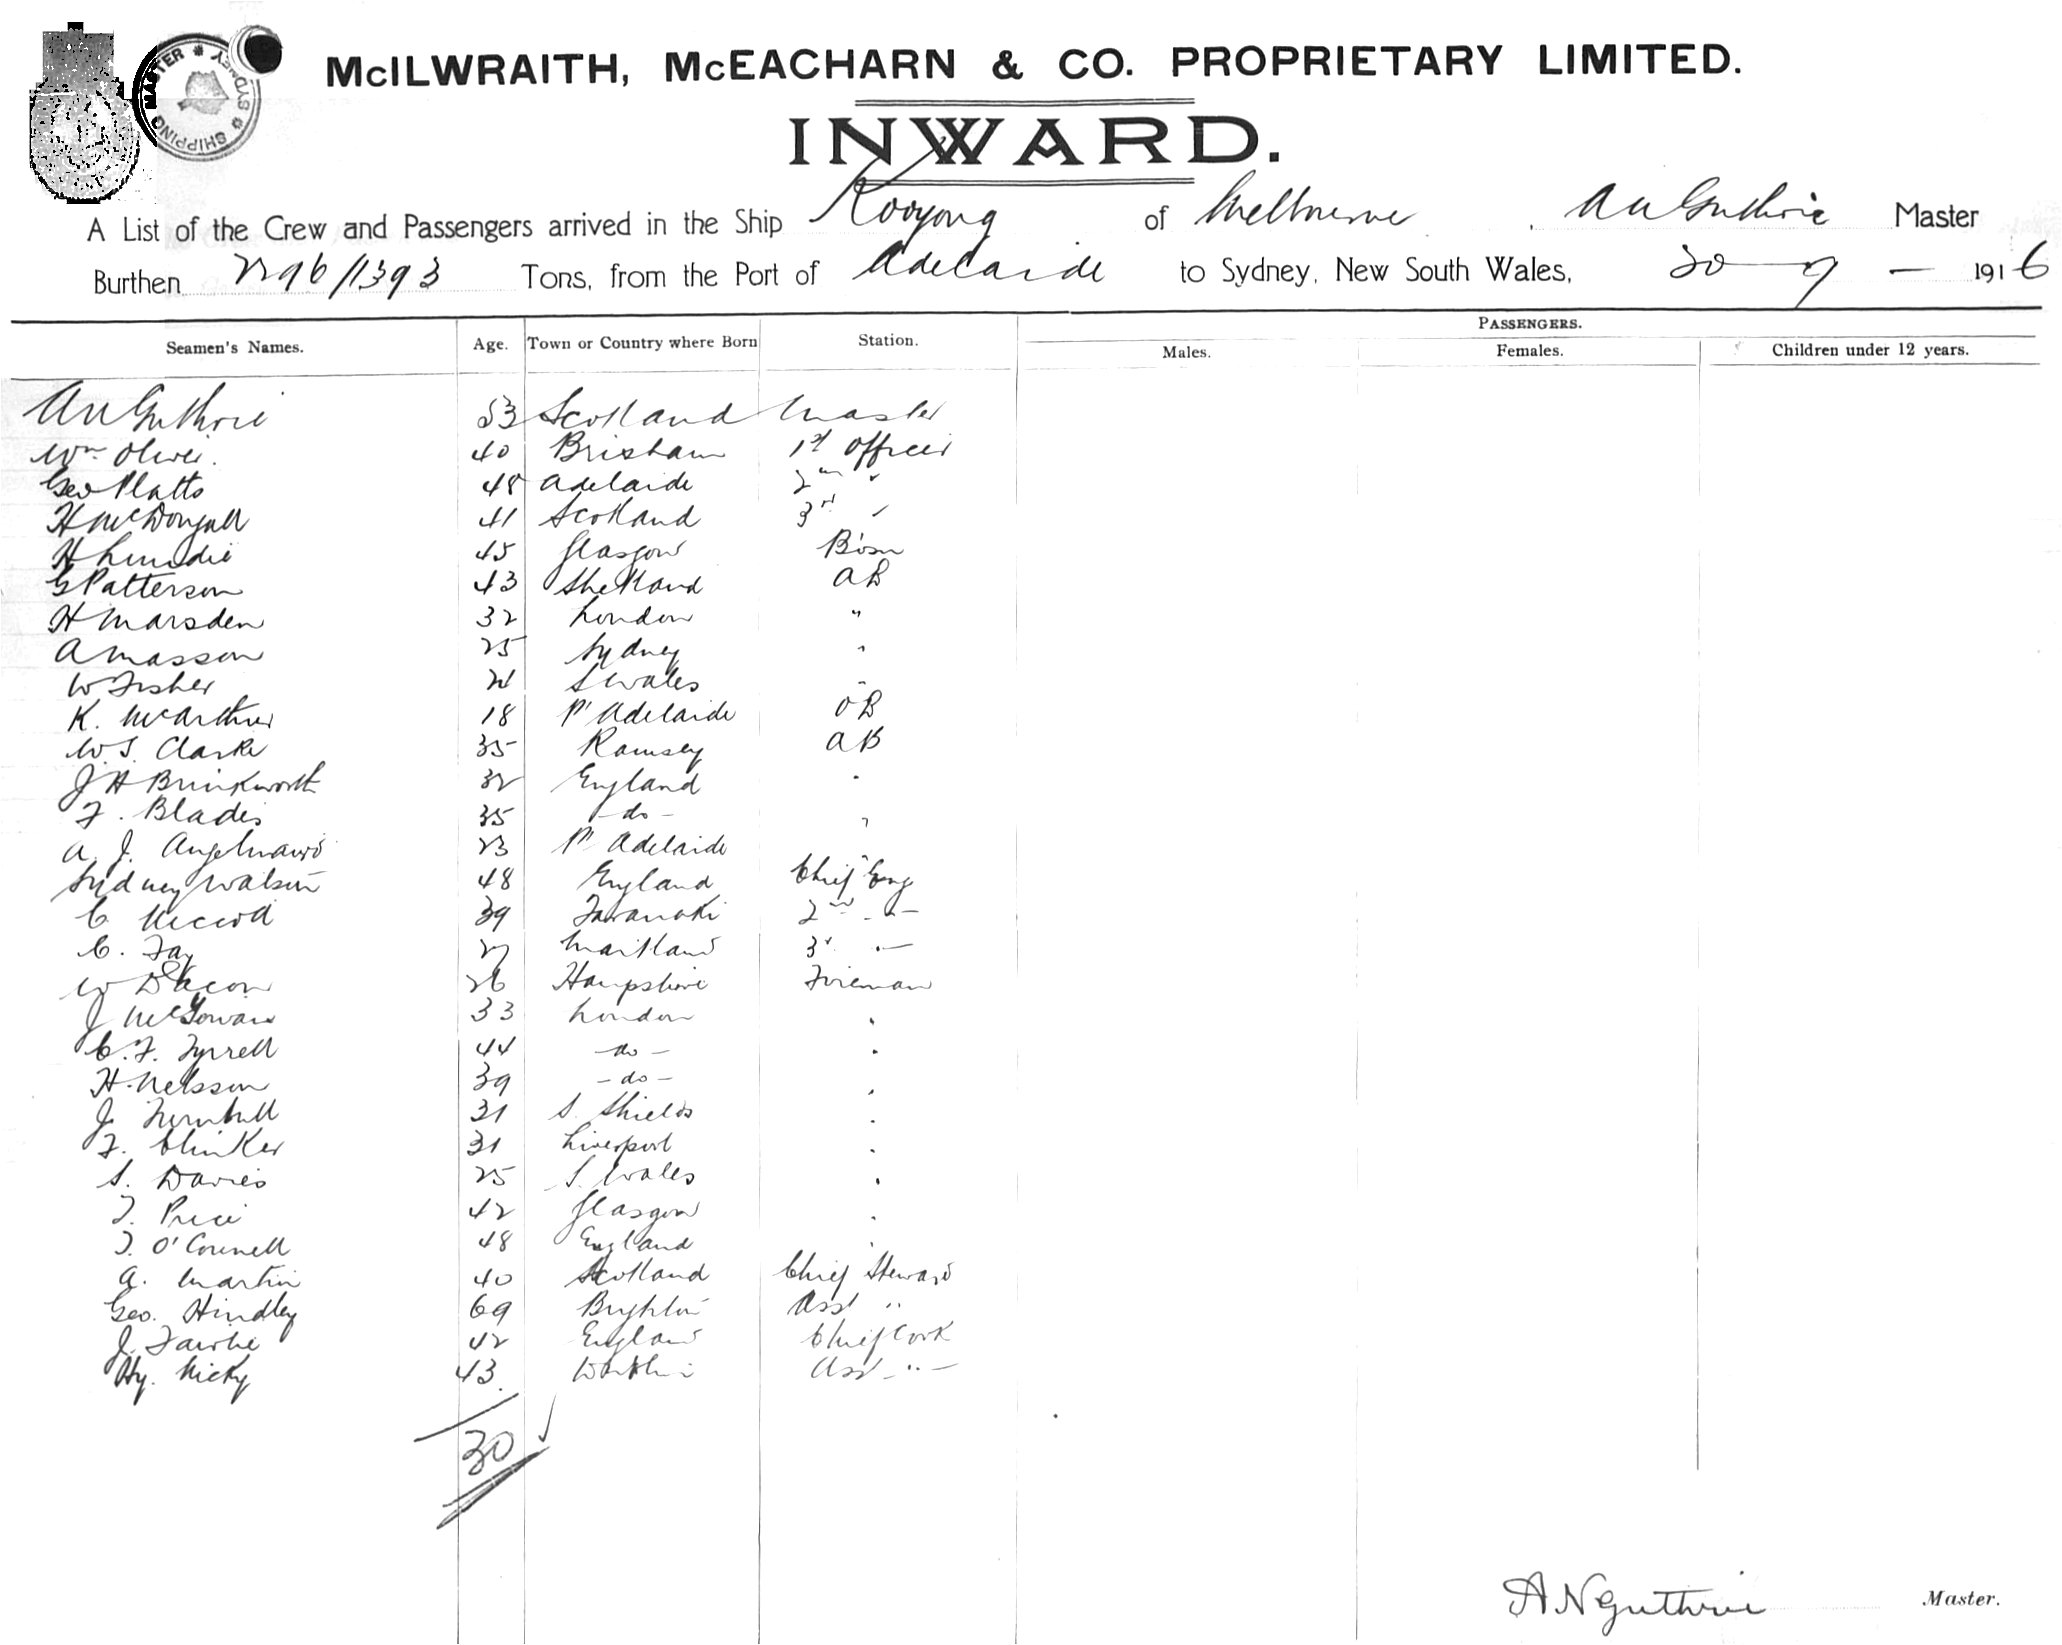 MASTER * SYDNEY * SHIPPING
McILWRAITH, McEACHARN & CO. PROPRIETARY LIMITED.
INWARD.
A List of the Crew and Passengers arrived in the Ship Kooyong of Melbourne, A N Guthrie Master
Burthen 2296/1393 Tons, from the Port of Adelaide to Sydney, New South Wales, 30 - 9 - 1916
PASSENGERS.
Seamen's Names. Age. Town or Country where Born Station. Males. Females. Children under 12 years.
A N Guthrie 53 Scotland Master
Wm Oliver. 40 Brisbane 1st Officer
Geo Platts 48 Adelaide 2nd "
H McDougall 41 Scotland 3rd "
H Lundie 45 Glasgow Bosn
G Patterson 43 Shetland AB
H Marsden 32 London "
A Masson 25 Sydney "
W Fisher 21 S Wales "
K. McArthur 18 Pt Adelaide OB
W.S. Clarke 35 Ramsey AB
J H Brinkworth 32 England "
F. Blades 35 - do - "
A. J. 23 Pt Adelaide "
Sydney Watson 48 England Chief Eng
C 39 Taranaki 2nd - " -
C. Fay 27 Maitland 3r " -
W Deacon 26 Hampshire Fireman
J McGowan 33 London "
C. F. Tyrrell 44 - do - "
H. Nelsson 39 - do - "
J. Turnbull 31 S. Shields "
F. Clinker 31 Liverpool "
S. Davies 25 S. Wales "
T. Price 42 Glasgow "
T. O'Connell 48 England "
A. Martin 40 Scotland Chief Steward
Geo. Hindley 69 Brighton Asst "
J. Fairlie 42 England Chief Cook
Hy. Nicky 43. Asst - " -
30
A N Guthrie Master.